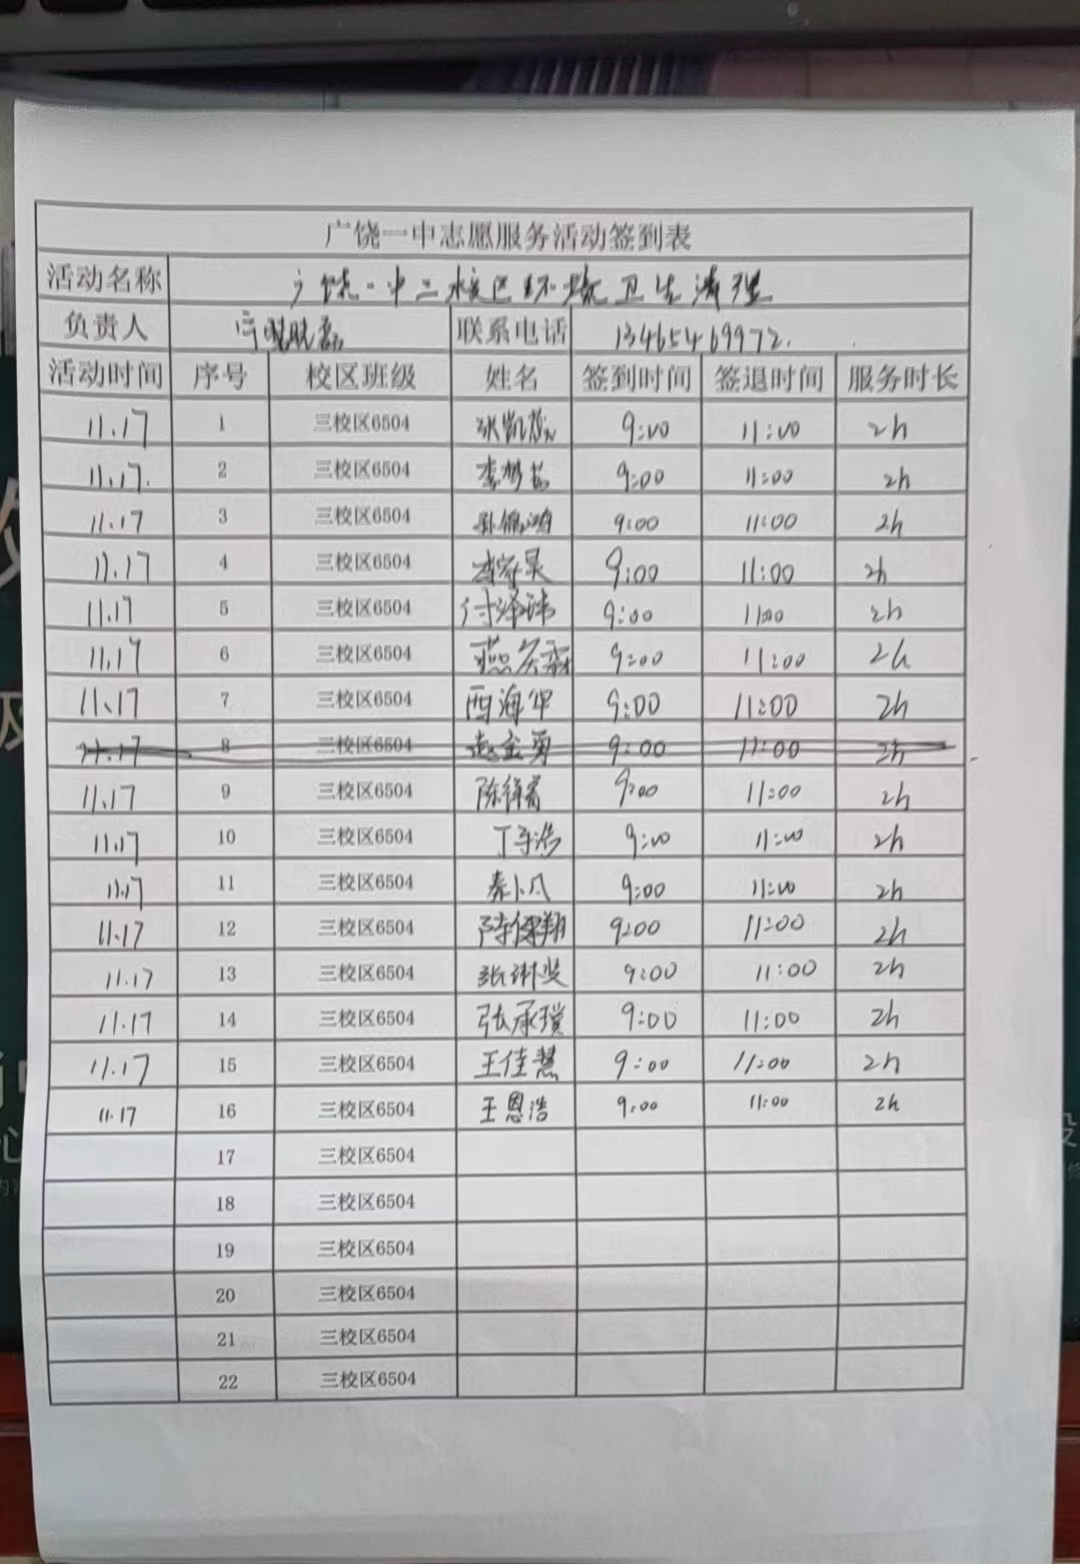 广饶一中志愿服务活动签到表
活动名称 广饶一中二校区环境卫生清理
负责人 联系电话 13465469972.
活动时间 序号 校区班级 姓名 签到时间 签退时间 服务时长
11.17 1 三校区6504 张凯 9:00 11:00 2h
11.17. 2 三校区6504 李 9:00 11:00 2h
11.17 3 三校区6504 孙锦鸿 9:00 11:00 2h
11.17 4 三校区6504 李 昊 9:00 11:00 2h
11.17 5 三校区6504 付泽玮 9:00 11:00 2h
11.17 6 三校区6504 燕 森 9:00 11:00 2h
11.17 7 三校区6504 西海华 9:00 11:00 2h
11.17 8 三校区6504 赵金勇 9:00 11:00 2h
11.17 9 三校区6504 陈 9:00 11:00 2h
11.17 10 三校区6504 丁子浩 9:00 11:00 2h
11.17 11 三校区6504 秦小凡 9:00 11:00 2h
11.17 12 三校区6504 翔 9:00 11:00 2h
11.17 13 三校区6504 张 9:00 11:00 2h
11.17 14 三校区6504 张承璞 9:00 11:00 2h
11.17 15 三校区6504 王佳慧 9:00 11:00 2h
11.17 16 三校区6504 王恩浩 9:00 11:00 2h
17 三校区6504
18 三校区6504
19 三校区6504
20 三校区6504
21 三校区6504
22 三校区6504